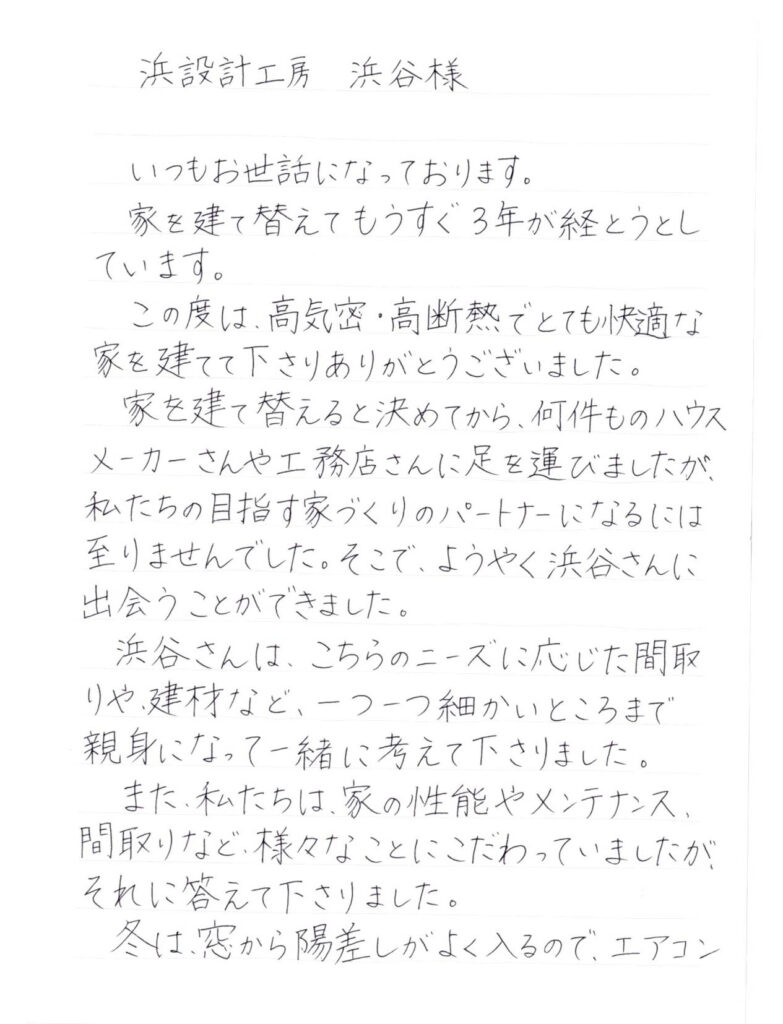 浜設計工房　浜谷様
いつもお世話になっております。
家を建て替えてもうすぐ3年が経とうとし
ています。
この度は、高気密・高断熱でとても快適な
家を建てて下さりありがとうございました。
家を建て替えると決めてから、何件ものハウス
メーカーさんや工務店さんに足を運びましたが、
私たちの目指す家づくりのパートナーになるには
至りませんでした。そこで、ようやく浜谷さんに
出会うことができました。
浜谷さんは、こちらのニーズに応じた間取
りや、建材など、一つ一つ細かいところまで
親身になって一緒に考えて下さりました。
また、私たちは、家の性能やメンテナンス、
間取りなど、様々なことにこだわっていましたが、
それに答えて下さりました。
冬は、窓から陽差しがよく入るので、エアコン